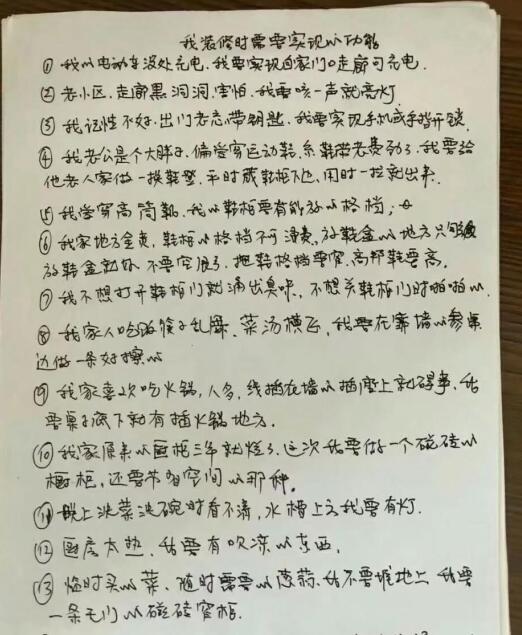 我装修时需要实现的功能
① 我的电动车没处充电，我要实现自家门口走廊可充电．
② 老小区，走廊黑洞洞，害怕，我要咳一声就亮灯
③ 我记性不好，出门老忘带钥匙，我要实现手机或手指开锁．
④ 我老公是个大胖子，偏爱穿运动鞋，系鞋带老费劲了，我要给
他老人家做一换鞋凳，平时藏鞋柜下边，用时一拉就出来．
⑤ 我爱穿高筒靴，我的鞋柜要有能放的格档；
⑥ 我家地方金贵，鞋柜的格档不可浪费，放鞋盒的地方只够
放鞋盒就好，不要空很多，拖鞋格档要窄，高帮鞋要高．
⑦ 我不想打开鞋柜门就涌出臭味，不想关鞋柜门时啪啪的．
⑧ 我家人吃路筷子乱舞，菜汤横飞，我要在靠墙的餐桌
边做一条好擦的
⑨ 我家喜欢吃火锅，人多，线插在墙的插座上就碍事，我
要桌子底下就有插火锅地方．
⑩ 我家原来的厨柜三年就烂了，这次我要做一个磁砖的
橱柜，还要节省空间的那种。
⑪ 晚上洗菜洗碗时看不清，水槽上方我要有灯．
⑫ 厨房太热，我要有吹凉的东西．
⑬ 临时买的菜，随时需要的葱蒜，我不要堆地上，我要
一条无门的磁砖窄柜．